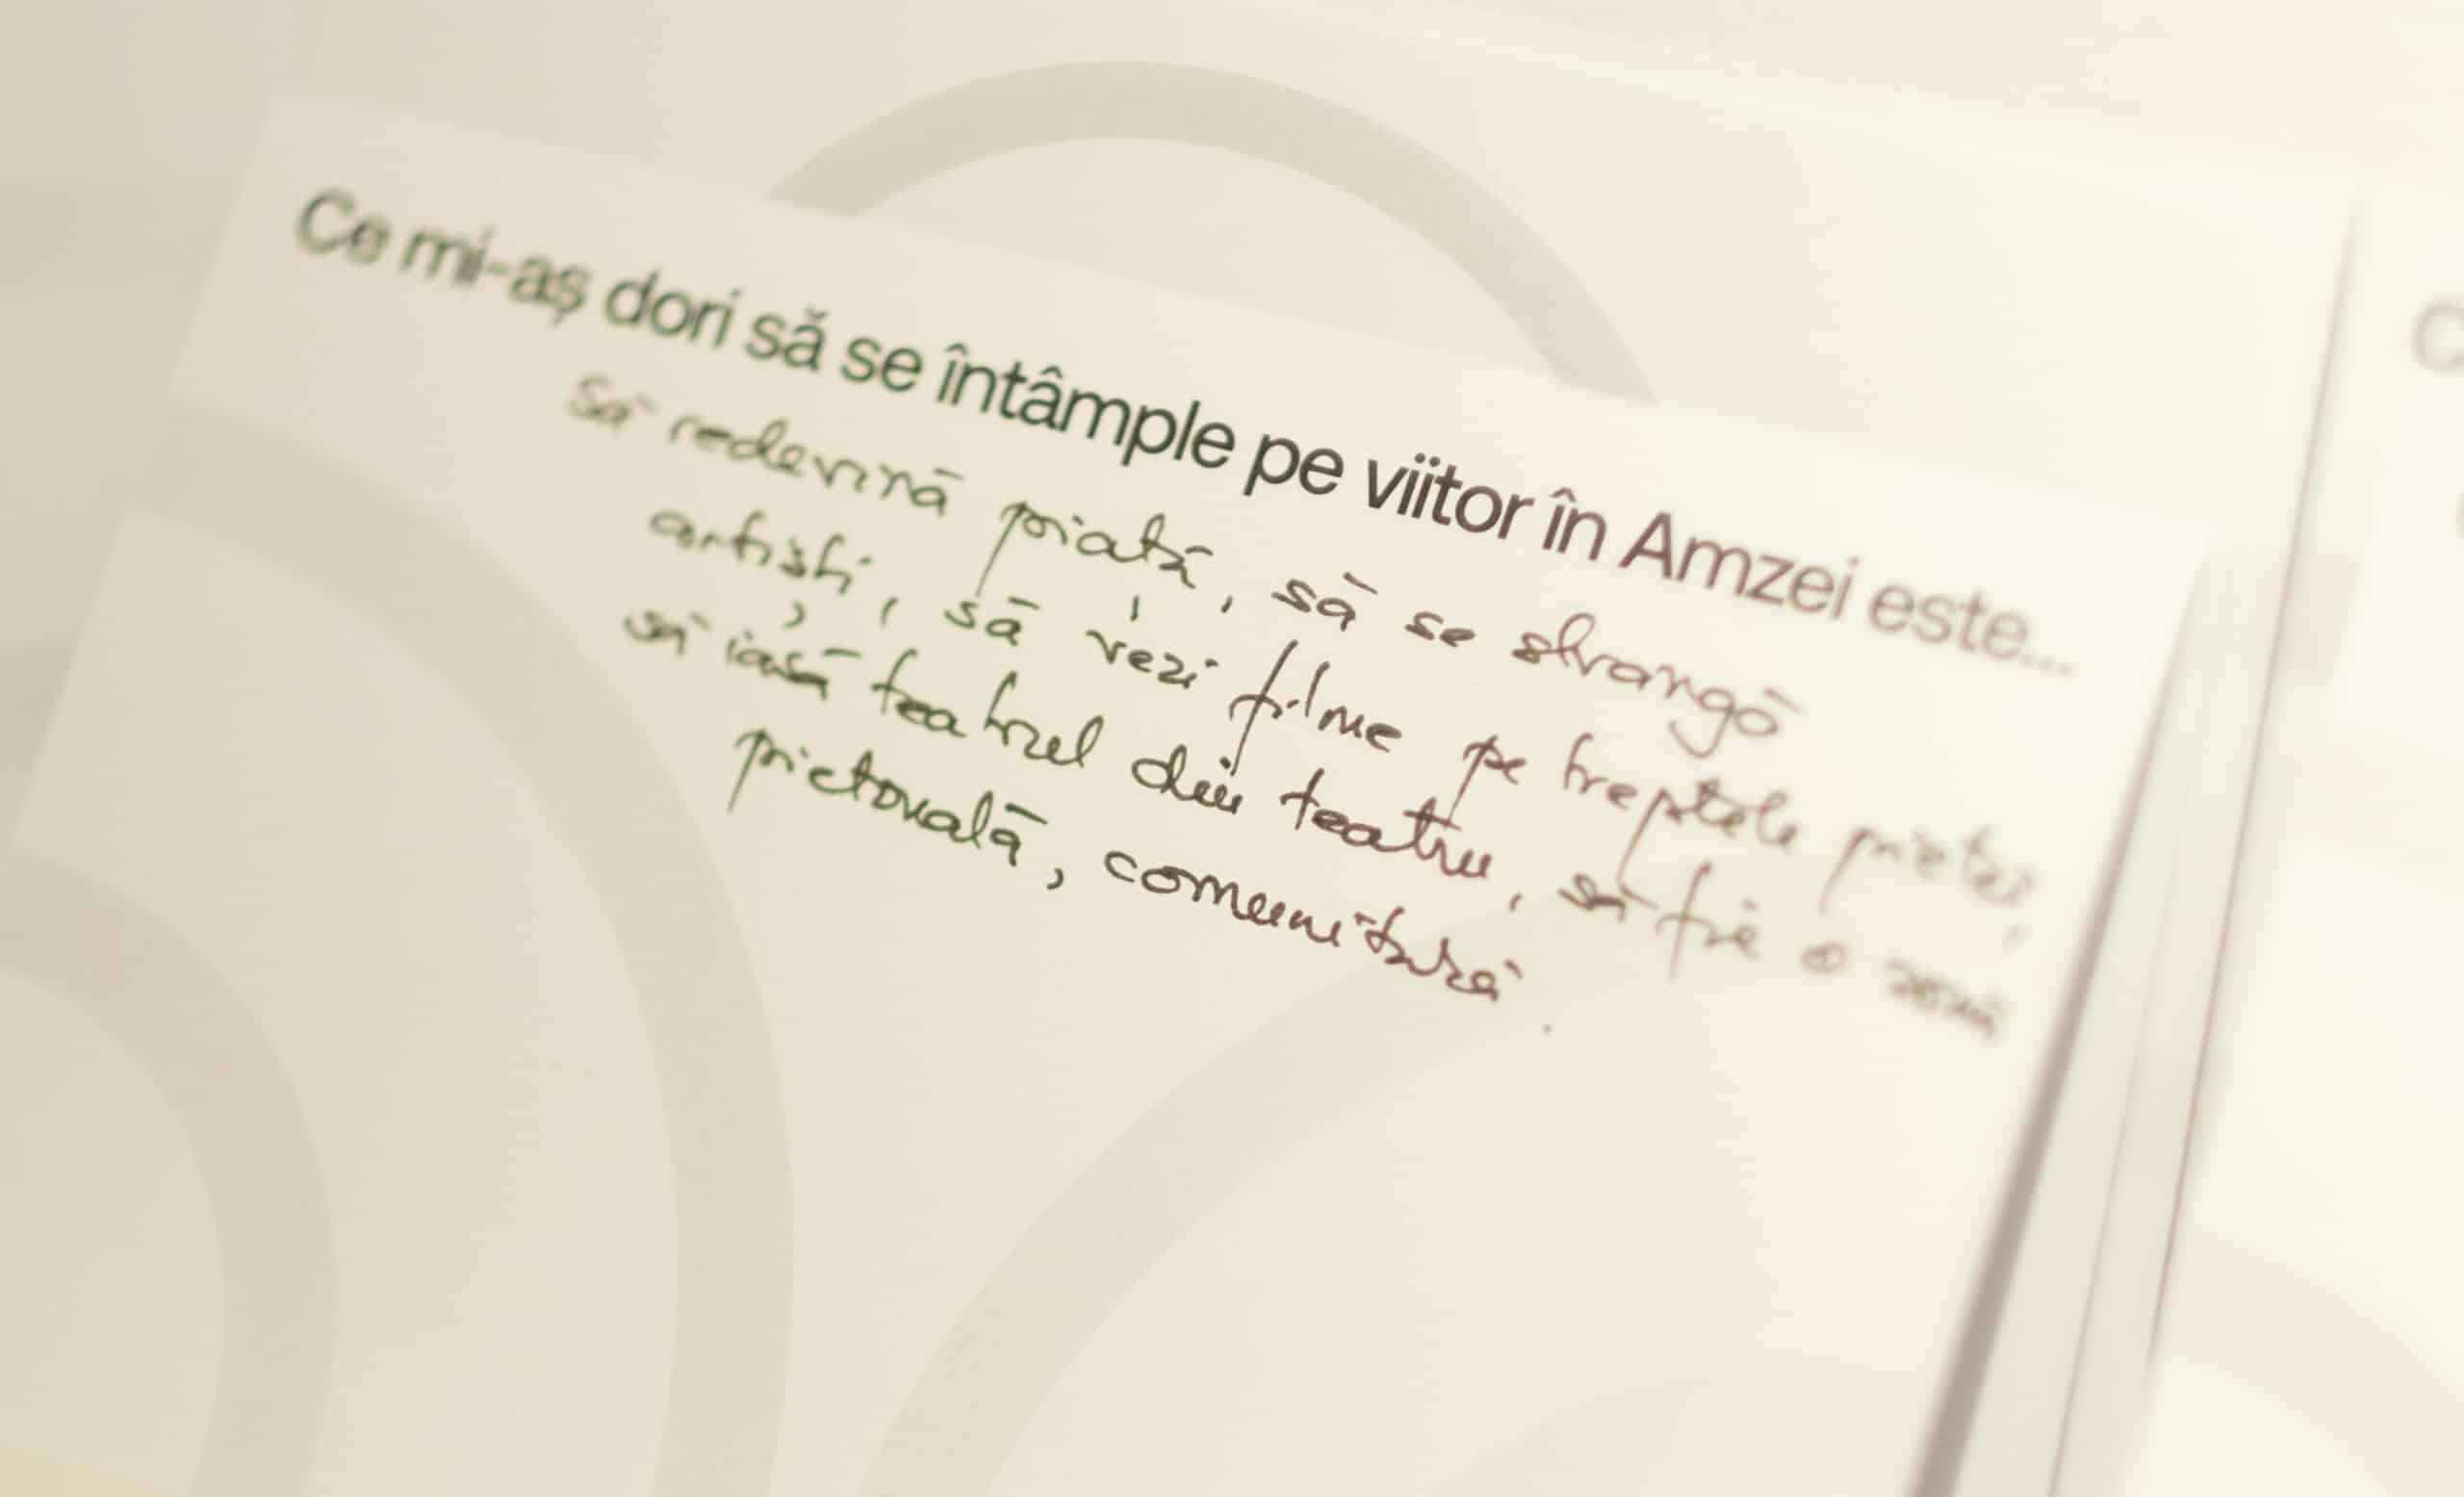 Ce mi-aș dori să se întâmple pe viitor în Amzei este...
să redevină piață, să se strângă
artiști, să vezi filme pe treptele pieței,
să iasă teatrul din teatru, să fie o zonă
pietonală, comunitară.